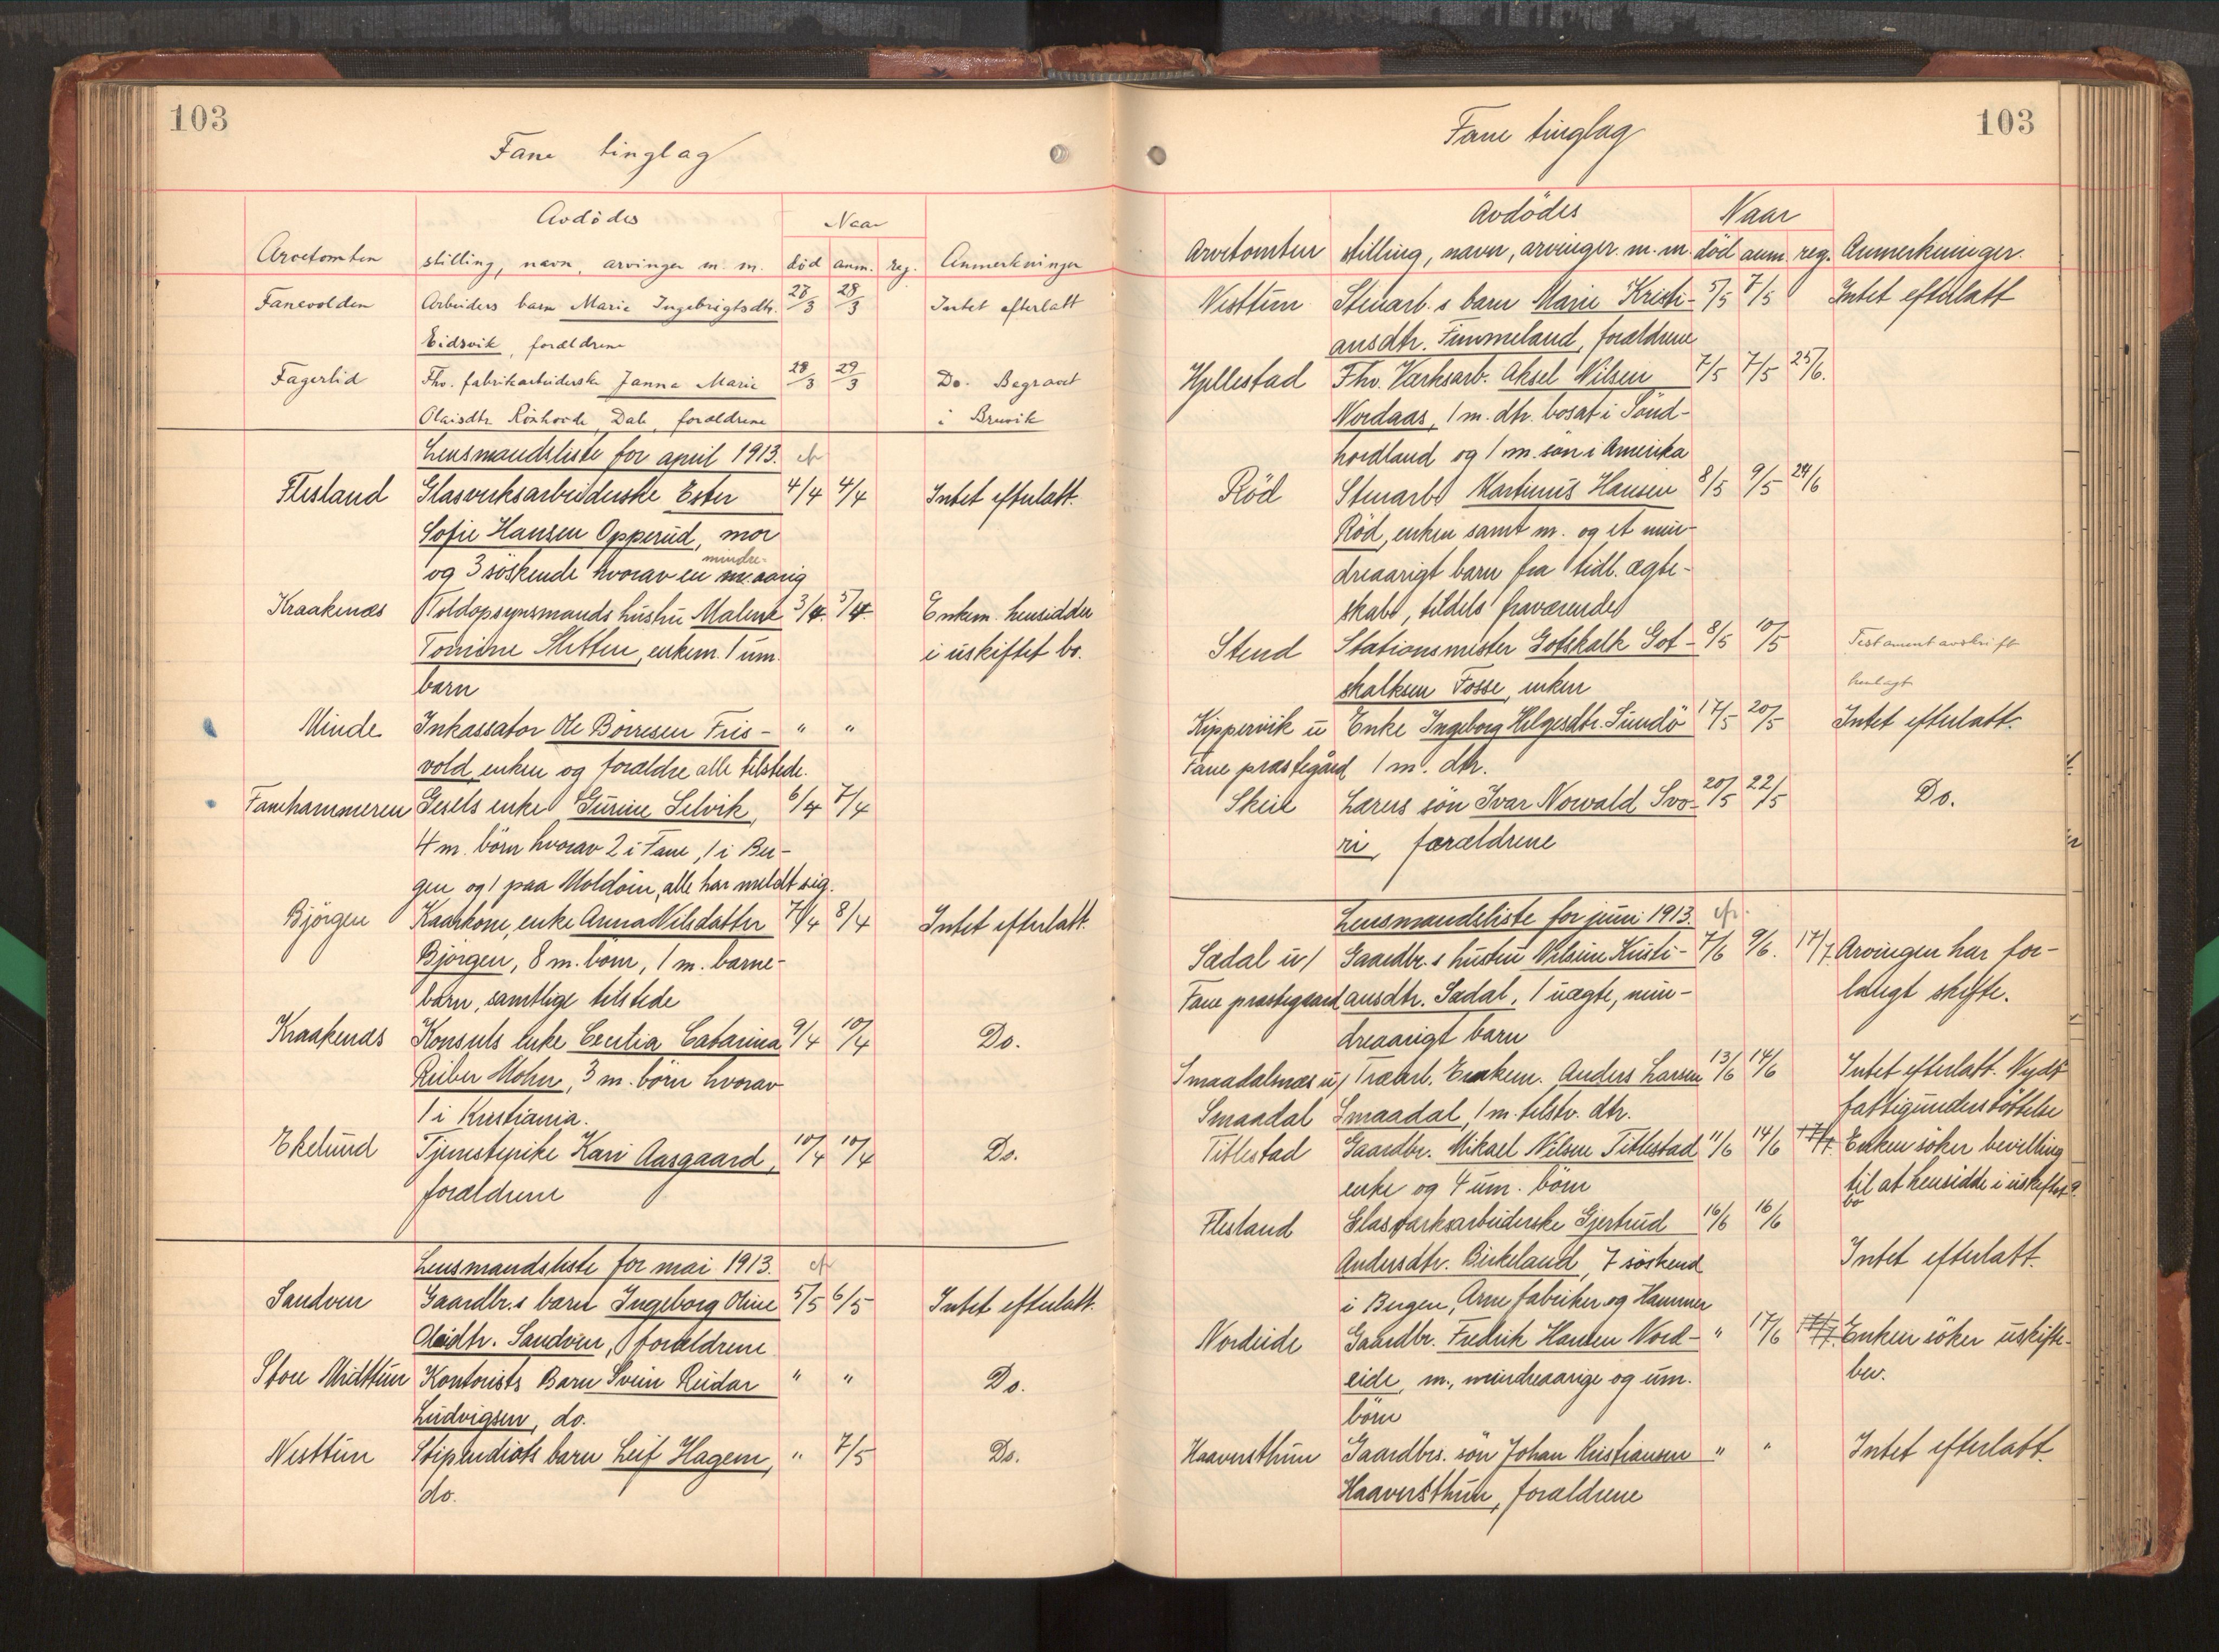 103
Fane tinglag
Avdödes Naar
Arvetomten stilling, navn, arvinger m. m. död anm. reg. Anmerkninger
Fanevolden Arbeiders barn Marie Ingebrigtsdtr. 28/3 28/3 Intet efterlatt
Eidsvik, forældrene
Fagerlid Fhv. fabrikarbeiderske Janna Marie 28/3 29/3 Do. Begravet
Olaisdtr. Dale, forældrene i Bruvik
Lensmandsliste for april 1913.
Flesland Glasverksarbeiderske Ester 4/4 4/4 Intet efterlatt.
Sofie Hansen Opperud, mor
mindre-
og 3 söskende hvorav en m. aarig
Kraakenæs Toldopsynsmands hustru Malene 3/4. 5/4. Enkem. hensidder
Tomine Sletten, enkem. 1 um. i uskiftet bo.
barn
Minde Inkassator Ole Börresen Fris- " "
vold, enken og forældre alle tilstede.
Fanehammeren Gesels enke Gurine Selvik, 6/4 7/4
4 m. börn hvorav 2 i Fane, 1 i Ber-
gen og 1 paa Moldöen, alle har meldt sig.
Björgen Kaarkone, enke Anna Nilsdatter 7/4 8/4 Intet efterlatt.
Björgen, 8 m. börn, 1 m. barne-
barn, samtlige tilstede
Kraakenæs Konsuls enke Cecilia Catarina 9/4 10/4 Do.
Reiber Mohn, 3 m. börn hvorav
1 i Kristiania.
Ekelund Tjenestepike Kari Aasgaard, 10/4 10/4 Do.
forældrene
Lensmandsliste for mai 1913.
Sandven Gaardbr.s barn Ingeborg Oline 5/5 6/5 Intet efterlatt.
Sandven, forældrene
Store Midttun Kontorists Barn Svein Reidar " " Do.
Ludvigsen, do.
Nesttun Stipendiats barn Leif Hagem, " 7/5 Do.
do.
103
Fane tinglag
Avdödes Naar
Arvetomten stilling, navn, arvinger. m. m. död anm. reg. Anmerkninger.
Nesttun Stenarb.s barn Marie Kristi- 5/5 7/5 Intet efterlatt
ansdtr. Fimmeland, forældrene
Hjellestad Fhv. Værksarb. Aksel Nilsen 7/5 7/5 25/6.
Nordaas, 1 m. dtr. bosat i Sönd-
hordland og 1 m. sön i Amerika
Röd Stenarb. Martinus Hansen 8/5 9/5 24/6
Röd, enken samt m. og et min-
dreaarigt barn fra tidl. ægte-
skab, tildels fraværende
Stend Stationsmester Gotskalk Got- 8/5 10/5 Testamentavskrift
skalksen Fosse, enken henlagt
Kippervik u Enke Ingeborg Helgesdtr. Sundö 17/5 20/5 Intet efterlatt.
Fane prestegård 1 m. dtr.
Skeie Lærers sön Ivar Norvald Svo- 20/5 22/5 Do.
ri, forældrene
Lensmandsliste for juni 1913.
Sædal u/ Gaardbr.s hustru Nilsine Kristi- 7/6 9/6. 17/7. Arvingen har for-
Fane prestegaard ansdtr. Sædal, 1 uægte, min- langt skifte.
dreaarigt barn
Smaadalsnæs u/ Træarb. Enkem. Anders Larsen 13/6 14/6 Intet efterlatt. Nydt
Smaadal Smaadal, 1 m. tilstv. dtr. fattigunderstöttelse
Titlestad Gaardbr. Mikael Nilsen Titlestad 11/6 14/6 17/7. Enken söker bevilling
enke og 4 um. börn til at hensidde i uskiftet
bo
Flesland Glasværksarbeiderske Gjertrud 16/6 16/6
Andersdtr. Birkeland, 7 söskend Intet efterlatt.
i Bergen, Arne fabriker og Hammer
Nordeide Gaardbr. Fredrik Hansen Nord- " 17/6 17/7. Enken söker uskifte-
eide, m., mindreaarige og um. bev.
börn
Haaversthun Gaardbrs. sön Johan Kristiansen " " Intet efterlatt.
Haaversthun, forældrene